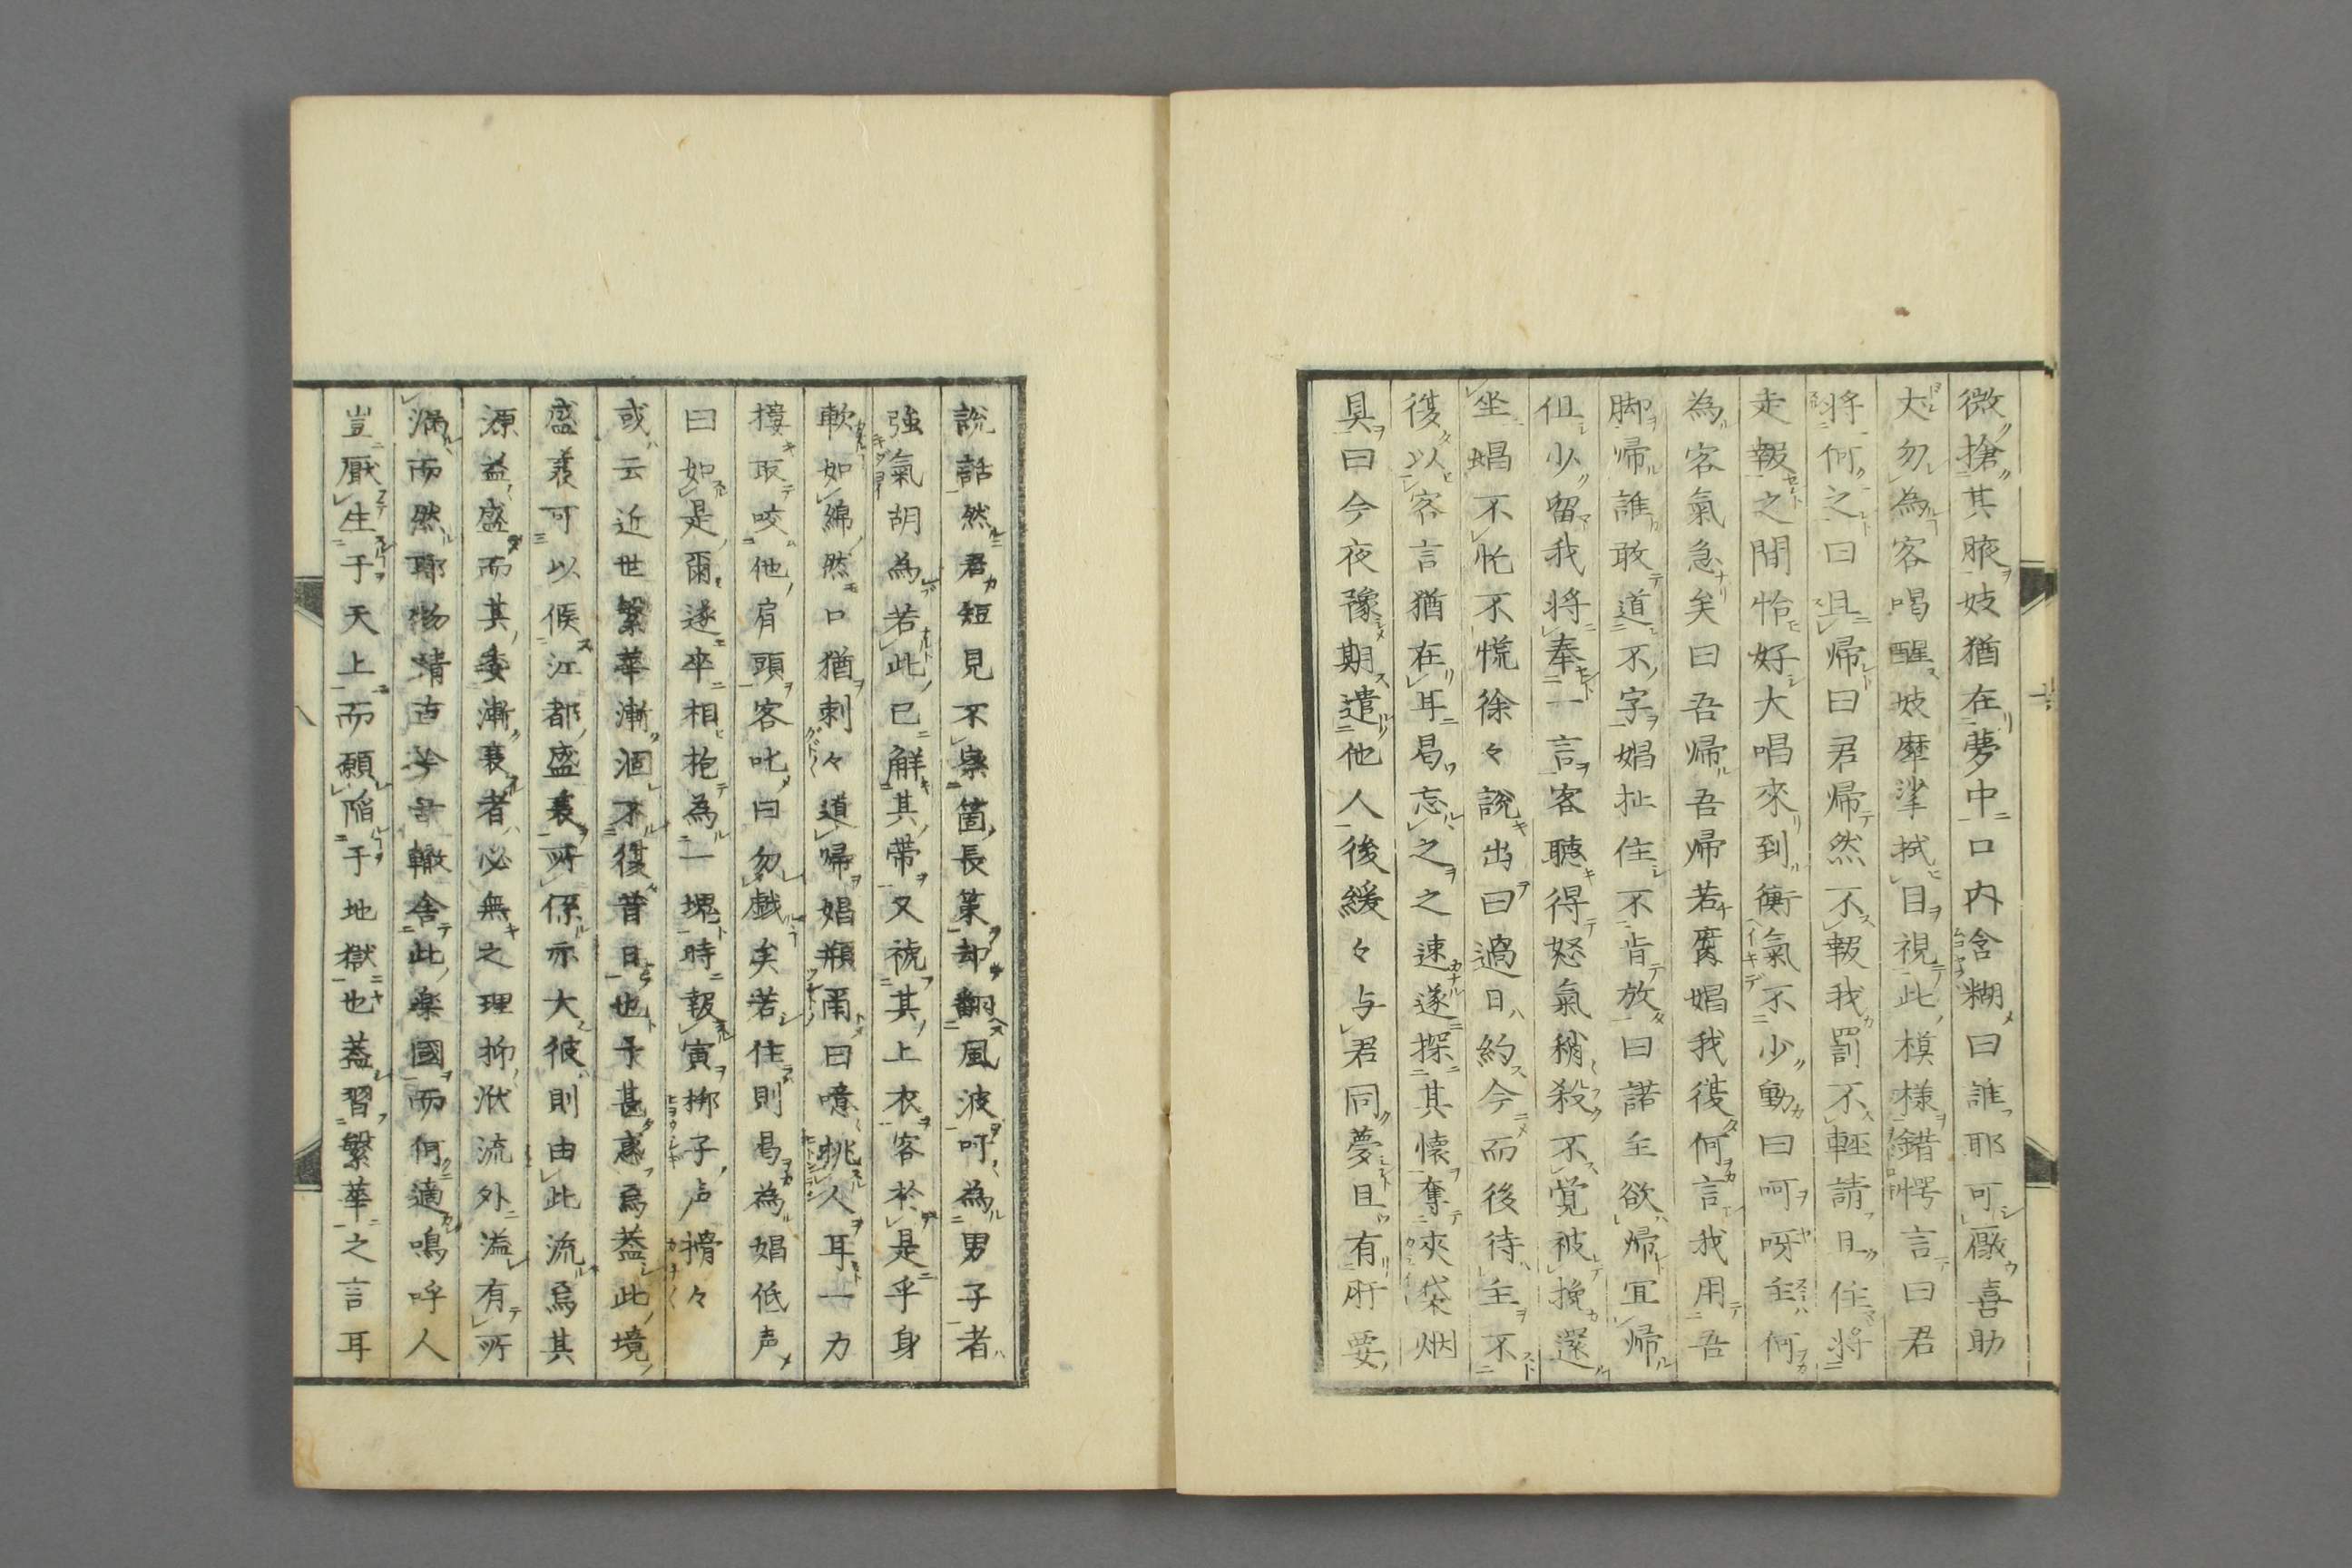 微搶其腋妓猶在夢中口内含糊曰誰耶可厰喜助
大勿為客喝醒妓摩挲拭目視此模様錯愕言曰君
将何之曰且帰曰君帰然不報我罰不軽請且住将
走報之間恰好大唱來到衝氣不少動曰呵呀主何
為客氣急矣曰吾帰吾帰若腐娼我復何言我用吾
脚帰誰敢道不字娼扯住不肯放曰諾主欲帰冝帰
但少留我将奉一言客聴得怒氣稍殺不覚被挽還
坐娼不忙不慌徐々説出曰過日約今而後待主不
復以客言猶在耳曷忘之之速遂探其懐奪夾袋烟
具曰今夜豫期遣他人後緩々与君同夢且有所要
説話然君短見不察箇長策却翻風波呵為男子者
強氣胡為若此已解其帯又褫其上衣客於是乎身
軟如綿然口猶刺々道帰娼頻曰噫挑人耳一力
接取咬他肩頭客叱曰勿戯矣若住則曷為娼低声
曰如是爾遂卒相抱為一塊時報寅柳子声搰々
或云近世繁華漸涸不復昔日也予甚惑焉蓋此境
盛衰可以候江都盛衰所係亦大彼則由此流焉其
源益盛而其委漸衰者必無之理抑洑流外溢有所
漏而然耶物情古今同轍舎此楽國而何適嗚呼人
豈厭生于天上而願陥于地獄也蓋習繁華之言耳